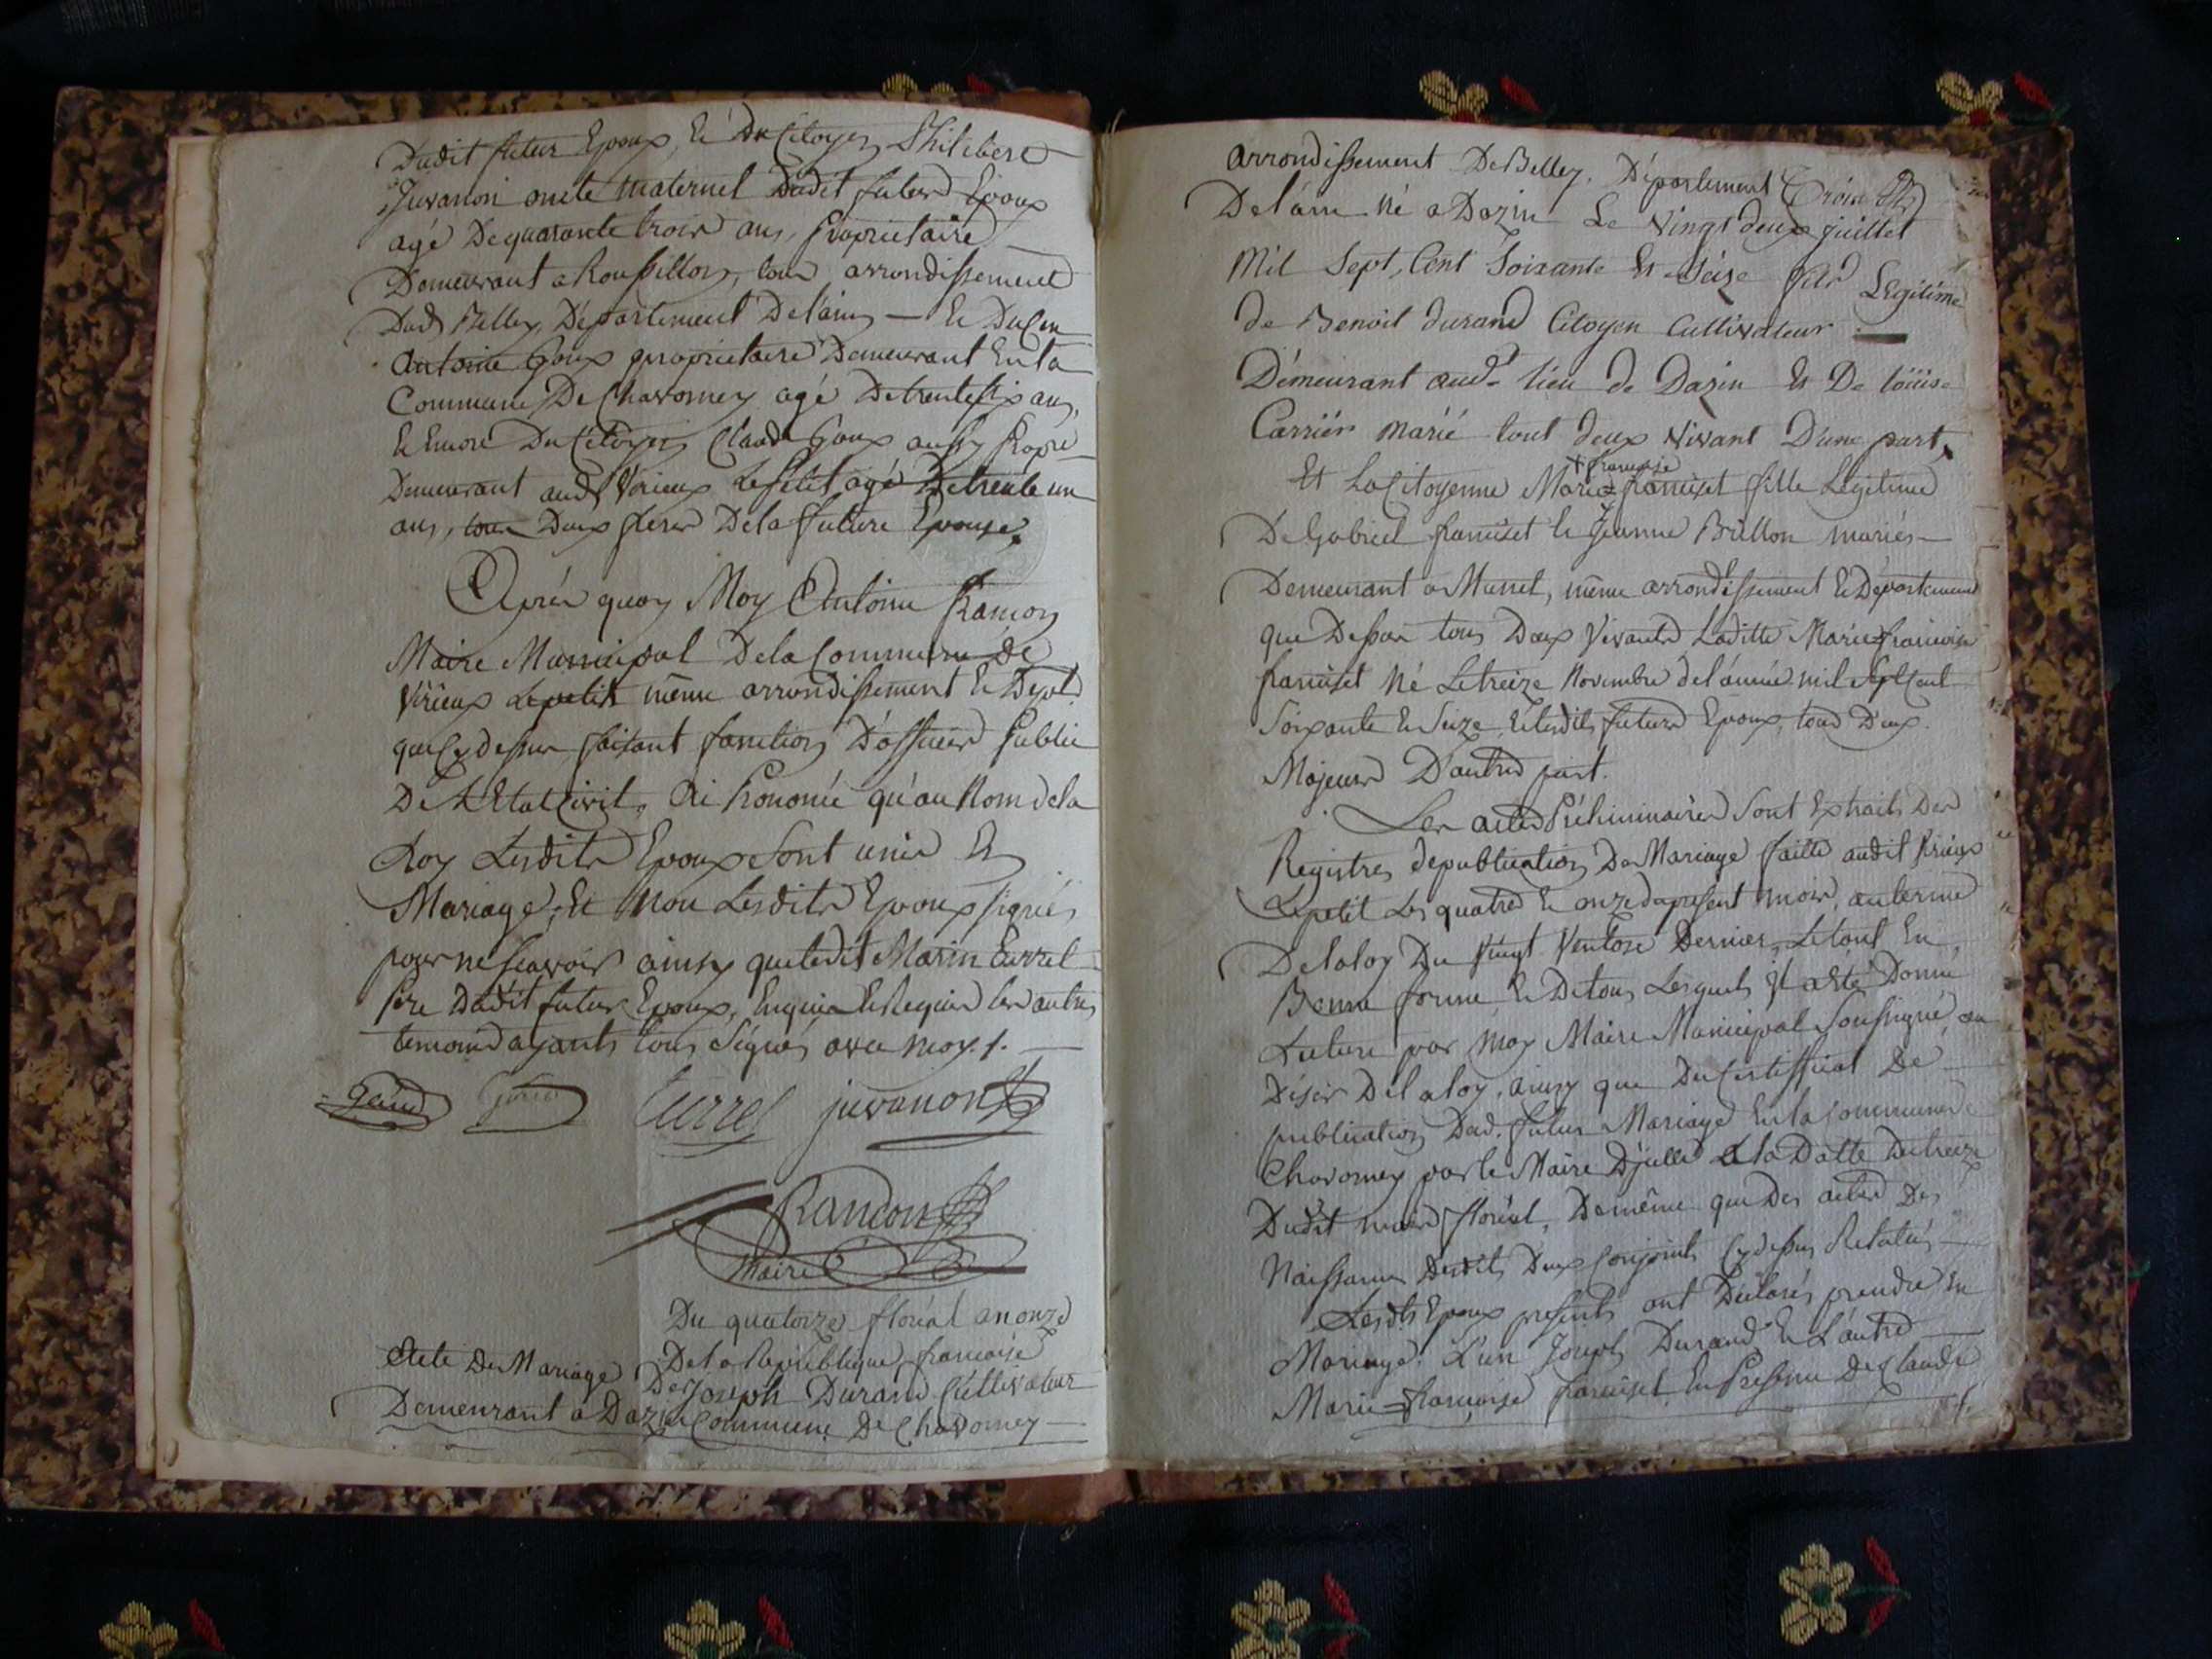 Dudit futur Epoux, Et Du Citoyen Philibert
Juvanon oncle maternel Dudit futur Epoux
agé De quarante trois ans, Propriétaire
Demeurant a Roussillon, tous arrondissement
Dud. Belley, Département De l'ain, — Et Du Cen
Antoine Goux propriétaire Demeurant En la
Commune De Chavorney agé De trente six ans,
Et Encore Du Citoyen Claude Goux aussy Propre
Demeurant aud. Virieux Le petit agé De trente un
ans, tous Deux freres De la future Epouse.
Après quoy Moy Antoine Rancon
Maire Municipal De la Commune de
Virieux Le petit même arrondissement Et Dépt.
que Cy dessus faisant fonction D'officier Public
De L'Etat Civil, Ai Prononcé qu'au Nom de la
Loy Lesdits Epoux Sont unis En
Mariage, Et Non Lesdits Epoux signés
pour ne scavoir ainsy que ledit Marin Turrel
Père Dudit futur Epoux, Enquis Et Requis les autres
temoins ayants tous Signés avec moy ./.
Goux Goux Turrel juvanon
Rancon
Maire
Du quatorze floréal an onze
Acte De Mariage De la République françoise
De Joseph Durand Cultivateur
Demeurant a Dazin Commune De Chavorney —
arrondissement De Belley, Département Trois
De l'ain Né a Dazin Le Vingt deux juillet
Mil Sept Cent Soixante Et Seize fils Légitime
de Benoit durand Citoyen Cultivateur —
Démeurant aud. lieu de Dazin Et De Loüise
Carrier marié tout deux Vivant D'une part,
+ françoise
Et La Citoyenne Marie + fille Légitime
De Gabriel Et Jeanne Brillon mariés —
Demeurant a Munet, même arrondissement Et Département
que Dessus tous Deux Vivants, Laditte Marie françoise
Né Le treize Novembre de l'année mil Sept Cent
Soixante Et Seize, Et lesdits futurs Epoux, tous Deux
Majeurs D'autre part.
Les actes Préliminaires Sont Extraits Des
Registres de publication De Mariage faitte audit Virieux
Le petit Les quatre Et onze du present mois, au terme
De la loy Du Vingt Ventose Dernier, Le tout En
Bonne forme Et De tous Lesquels Il a Eté Donné
Lecture par moy Maire Municipal Soussigné, au
Désir De la loy, ainsy que Du Certifficat De
publication Dud. futur Mariage En la Commune de
Chavorney par le Maire D'jcelle A la Datte Du treize
Dudit mois floréal, De même que Des actes De
Naissance Desdits Deux Conjoints Cy dessus Relatés —
Lesdts Epoux présents ont Déclarés prendre En
Mariage. L'un Joseph Durand Et L'autre —
Marie = françoise En Présence De Claude